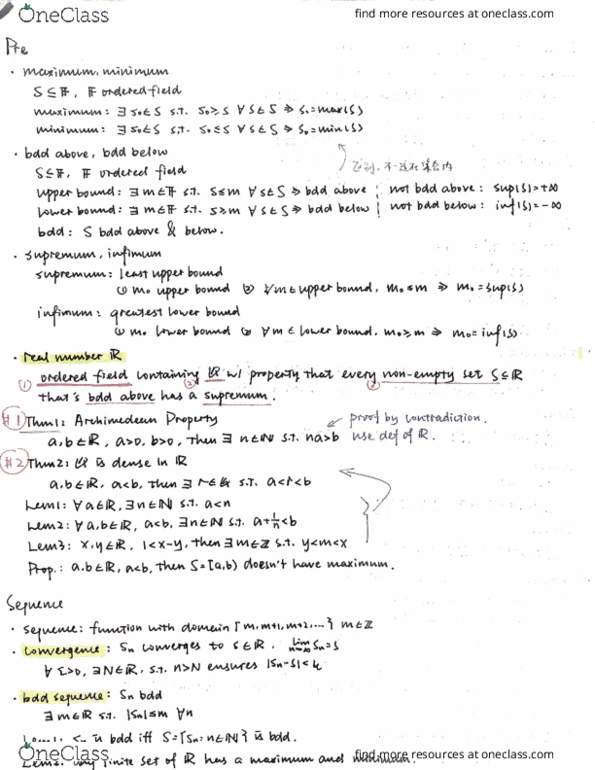 OneClass
find more resources at oneclass.com
Pre
· maximum, minimum
S⊆𝔽, 𝔽 ordered field
maximum: ∃ s₀∈S s.t. s₀≥s ∀s∈S ⇒ s₀=max(S)
minimum: ∃ s₀∈S s.t. s₀≤s ∀s∈S ⇒ s₀=min(S)
· bdd above, bdd below
S⊆𝔽, 𝔽 ordered field
不一定在集合内
upper bound: ∃ m∈𝔽 s.t. s≤m ∀s∈S ⇒ bdd above ; not bdd above: sup(S)=+∞
lower bound: ∃ m∈𝔽 s.t. s≥m ∀s∈S ⇒ bdd below | not bdd below: inf(S)=-∞
bdd: S bdd above & below.
· supremum, infimum
supremum: least upper bound
① m₀ upper bound ② ∀m∈upper bound, m₀≤m ⇒ m₀=sup(S)
infimum: greatest lower bound
① m₀ lower bound ② ∀m∈lower bound, m₀≥m ⇒ m₀=inf(S)
· real number ℝ
① ordered field containing ② ℚ w/ property that every ③ non-empty set S⊆ℝ
that's bdd above has a supremum.
#1 Thm1: Archimedean Property
a,b∈ℝ, a>0, b>0, then ∃ n∈ℕ s.t. na>b
proof by contradiction.
use def of ℝ.
#2 Thm2: ℚ is dense in ℝ
a,b∈ℝ, a<b, then ∃ r∈ℚ s.t. a<r<b
Lem1: ∀a∈ℝ, ∃n∈ℕ s.t. a<n
Lem2: ∀a,b∈ℝ, a<b, ∃n∈ℕ s.t. a+1/n<b
Lem3: x,y∈ℝ, 1<x-y, then ∃m∈ℤ s.t. y<m<x
Prop.: a,b∈ℝ, a<b, then S=[a,b) doesn't have maximum.
Sequence
· sequence: function with domain {m, m+1, m+2, ...} m∈ℤ
· convergence: Sn converges to s∈ℝ. lim n→∞ Sn=s
∀ε>0, ∃N∈ℝ, s.t. n>N ensures |Sn-s|<ε
· bdd sequence: Sn bdd
∃m∈ℝ s.t. |Sn|≤m ∀n
Sn is bdd iff S={Sn: n∈ℕ} is bdd.
finite set of ℝ has a maximum and minimum.
OneClass
find more resources at oneclass.com